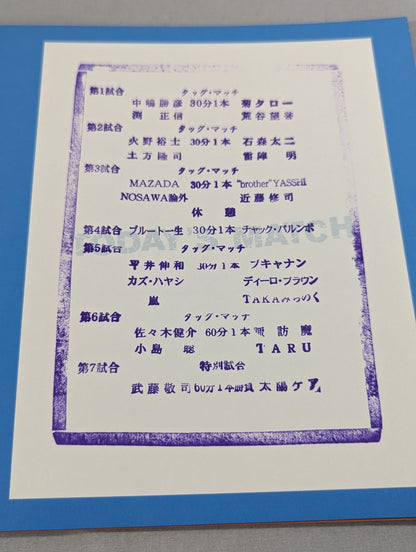 第1試合 タッグ・マッチ
中嶋勝彦 30分1本 菊タロー
渕 正信 荒谷望誉
第2試合 タッグ・マッチ
火野裕士 30分1本 石森太二
土方隆司 雷陣 明
第3試合 タッグ・マッチ
MAZADA 30分1本 "brother"YASSHI
NOSAWA論外 近藤修司
休 憩
第4試合 ブルート一生 30分1本 チャック・パルンボ
TODAY'S MATCH
第5試合 タッグ・マッチ
平井伸和 30分1本 ブキャナン
カズ・ハヤシ ディーロ・ブラウン
嵐 TAKAみちのく
第6試合 タッグ・マッチ
佐々木健介 60分1本 諏訪魔
小島 聡 TARU
第7試合 特別試合
武藤敬司 60分1本勝負 太陽ケア